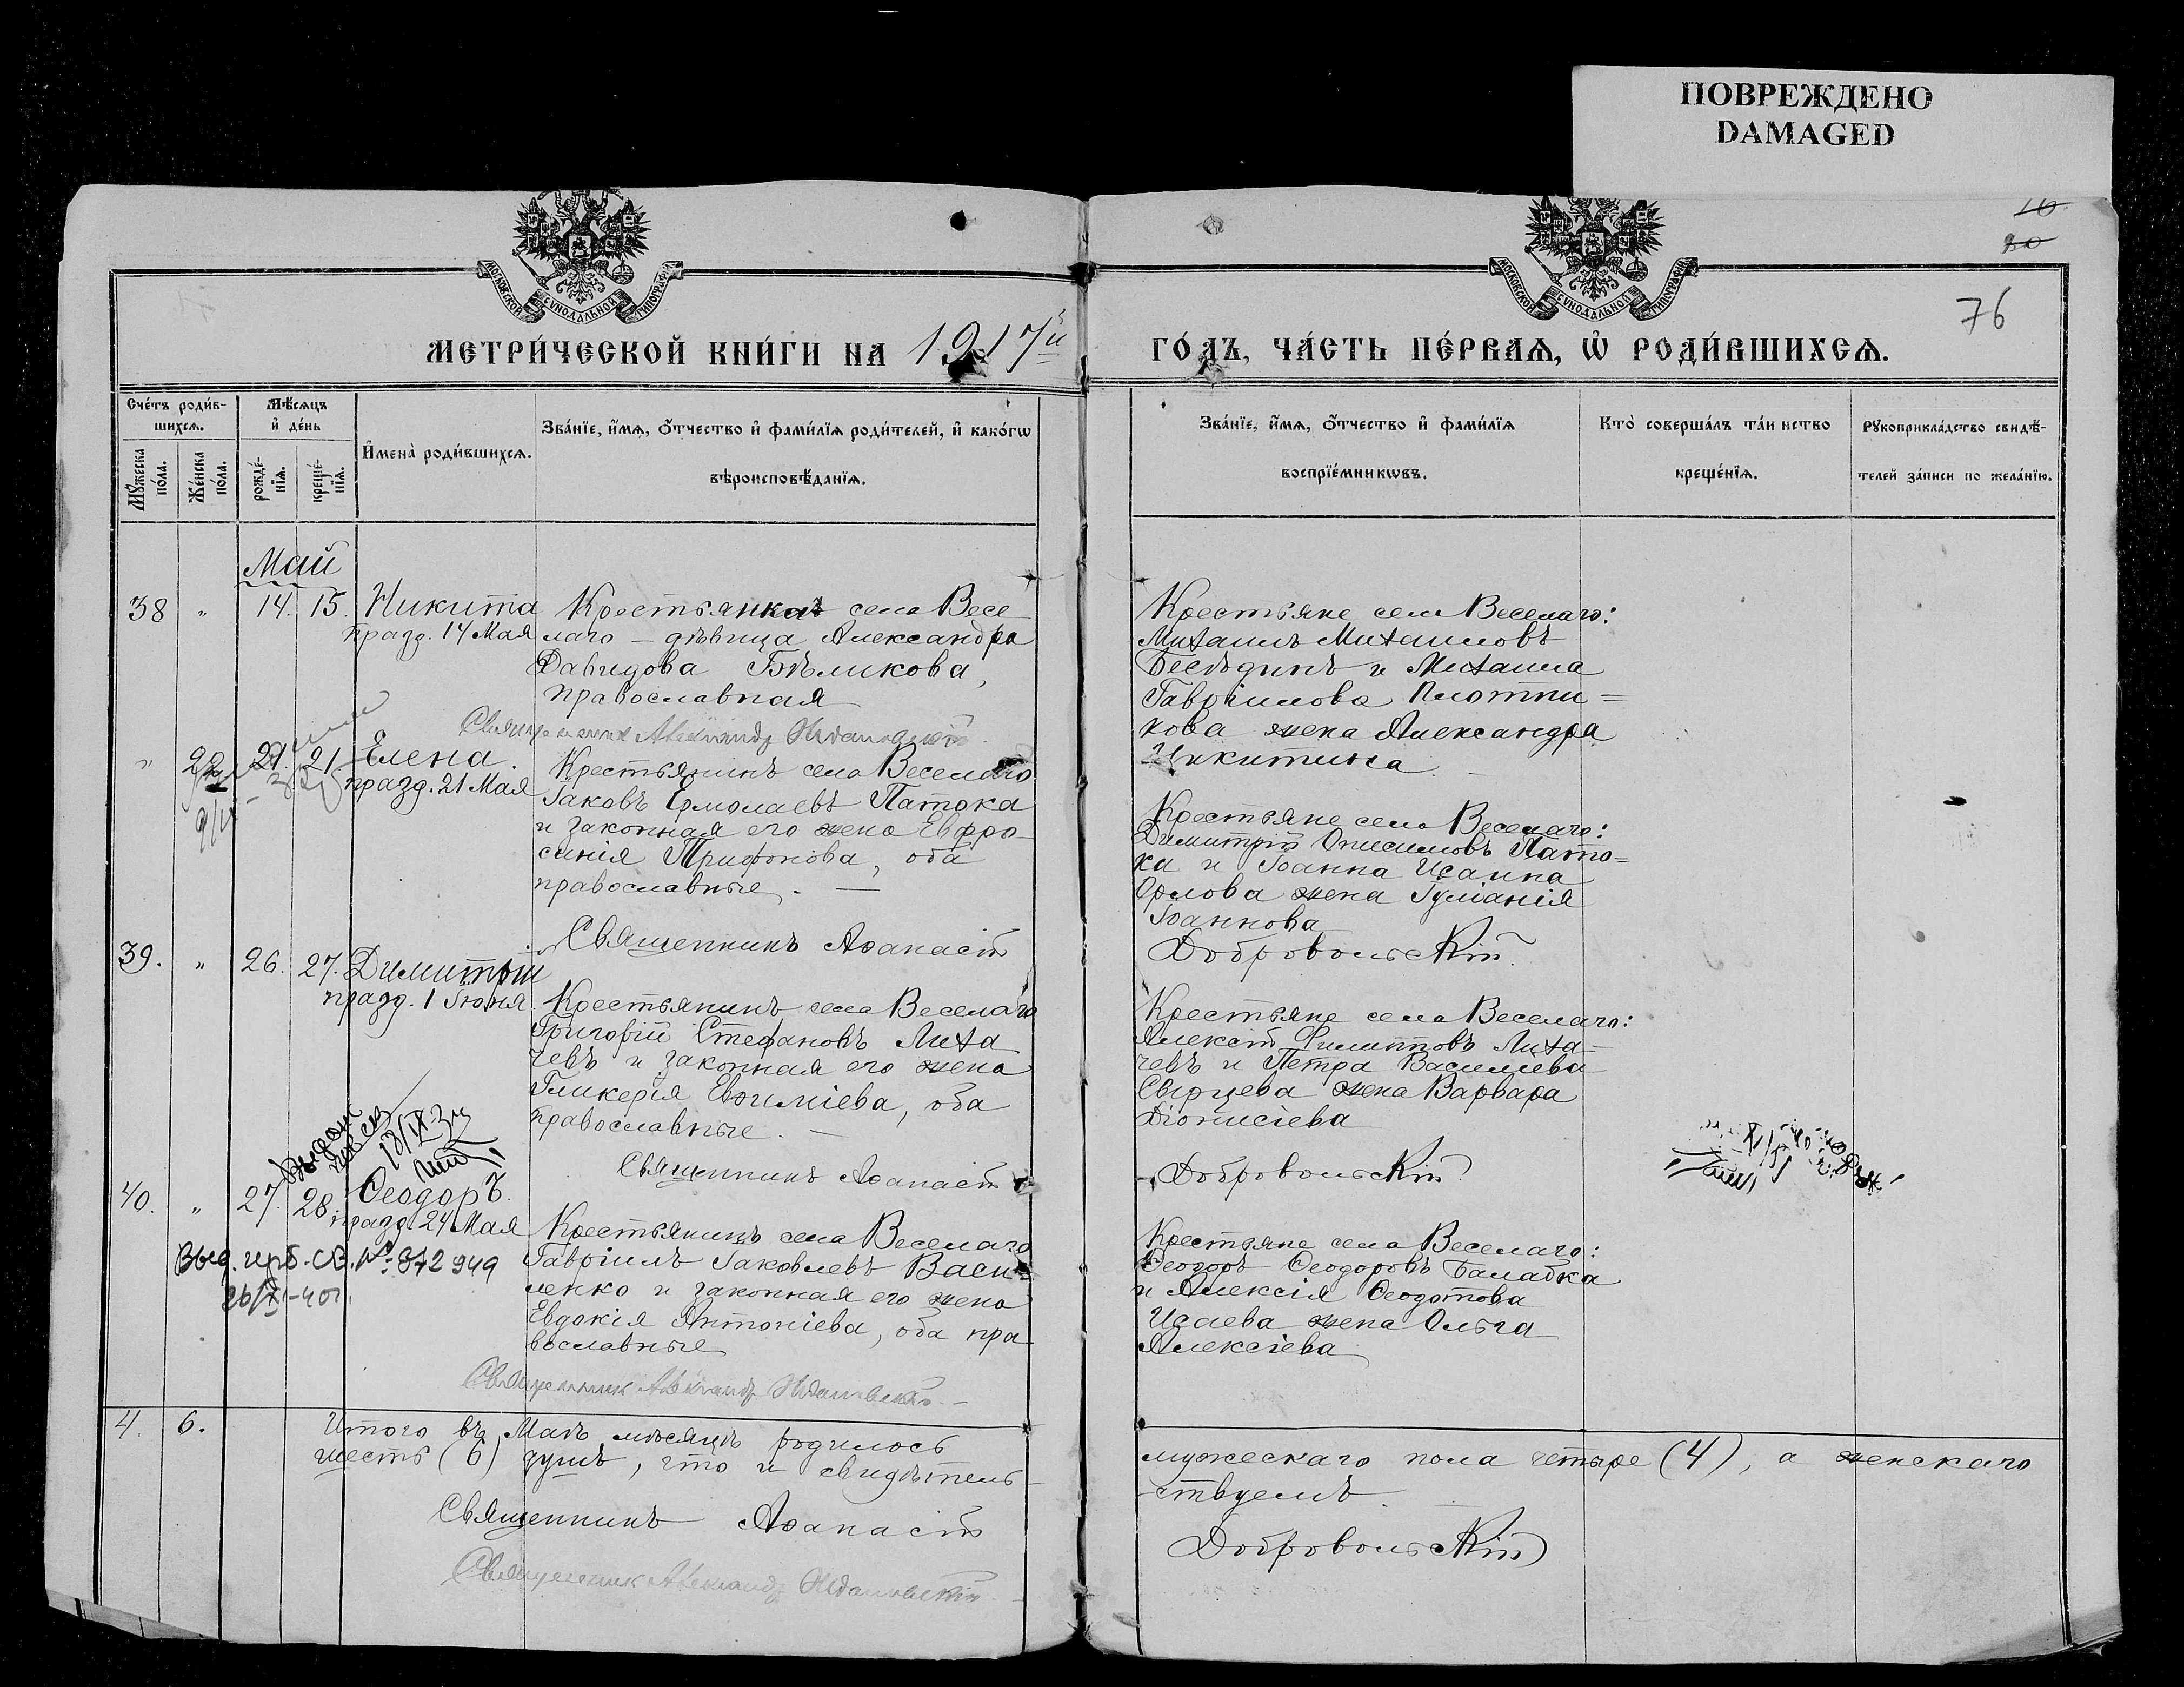 ПОВРЕЖДЕНО
DAMAGED
10
80
76
МОСКОВСКОЙ СѴНОДАЛЬНОЙ ТИПОГРАФІИ
МОСКОВСКОЙ СѴНОДАЛЬНОЙ ТИПОГРАФІИ
МЕТРИ́ЧЕСКОЙ КНИ́ГИ НА 1917й ГО́ДЪ, ЧА́СТЬ ПЕ́РВАѦ, Ѡ РОДИ́ВШИХСѦ.
Сче́тъ роди́в-
шихсѧ.
Мꙋ́жеска по́ла.
Же́нска по́ла.
Мѣ́сѧцъ
и҆ де́нь
рожде́-
нїѧ.
креще́-
нїѧ.
И҆мена̀ роди́вшихсѧ.
Зва́нїе, и҆́мѧ, ѻ҆́тчество и҆ фами́лїѧ роди́телей, и҆ како́гѡ
вѣроисповѣ́данїѧ.
Зва́нїе, и҆́мѧ, ѻ҆́тчество и҆ фами́лїѧ
воспрїе́мникѡвъ.
Кто̀ соверша́лъ та́инство
креще́нїѧ.
Рꙋкоприкла́дство свидѣ́-
телей за́писи по жела́нїю.
Май
38 " 14. 15. Никита
празд. 14 Мая
Крестьянка села Весе
лаго – дѣвица Александра
Давидова Бѣликова,
православная
Священник Александр
Крестьяне села Веселаго:
Михаилъ Михаиловъ
Бесѣдинъ и Михаила
Гавріилова Плотни=
кова жена Александра
Никитина
" 22 21. 21 Елена.
празд. 21 Мая
Крестьянинъ села Веселаго
Іаковъ Ермолаевъ Патока
и законная его жена Евфро-
синія Трифонова, оба
православные. —
Священникъ Аѳанасій
Крестьяне села Веселаго:
Димитрій Онисимовъ Пато=
ка и Іоанна Исаина
Орлова жена Іуліанія
Іоаннова
Добровольскій.
39. " 26. 27. Димитрій
празд. 1 Іюня
Крестьянинъ села Веселаго
Григорій Стефановъ Лиха
чевъ и законная его жена
Гликерія Евѳиміева, оба
православные. —
Священникъ Аѳанасій
Крестьяне села Веселаго:
Алексій Филипповъ Лиха-
чевъ и Петра Василіева
Свирцева жена Варвара
Діонисіева
Добровольскій
40. " 27. 28. Ѳеодоръ.
празд. 24 Мая
Выд. герб. св. № 872949
26/XI-40 г.
Крестьянинъ села Веселаго
Гавріилъ Іаковлевъ Васи=
ленко и законная его жена
Евдокія Антоніева, оба пра
вославные
Священник Александр
Крестьяне села Веселаго:
Ѳеодоръ Ѳеодоровъ Балабка
и Алексія Ѳеодотова
Исаева жена Ольга
Алексіева
4. 6. Итого въ Маѣ мѣсяцѣ родилось мужескаго пола четыре (4), а женскаго
шесть (6) душъ, что и свидѣтель-
ствуемъ.
Священникъ Аѳанасій Добровольскій
Священник Александр